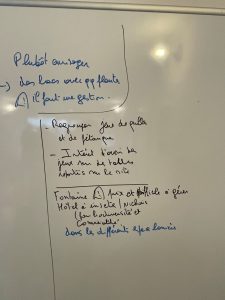 Plutôt envisager
→) des bacs avec qq plantes
⚠ il faut une gestion.
- Regrouper jeux de quilles
et de pétanque
- Intérêt d'avoir des
jeux sur des tables
reparties sur le site
Fontaine ⚠ prix et difficile à gérer
Hôtel à insecte / Nichoirs
(biodiversité et
dans les différents espaces